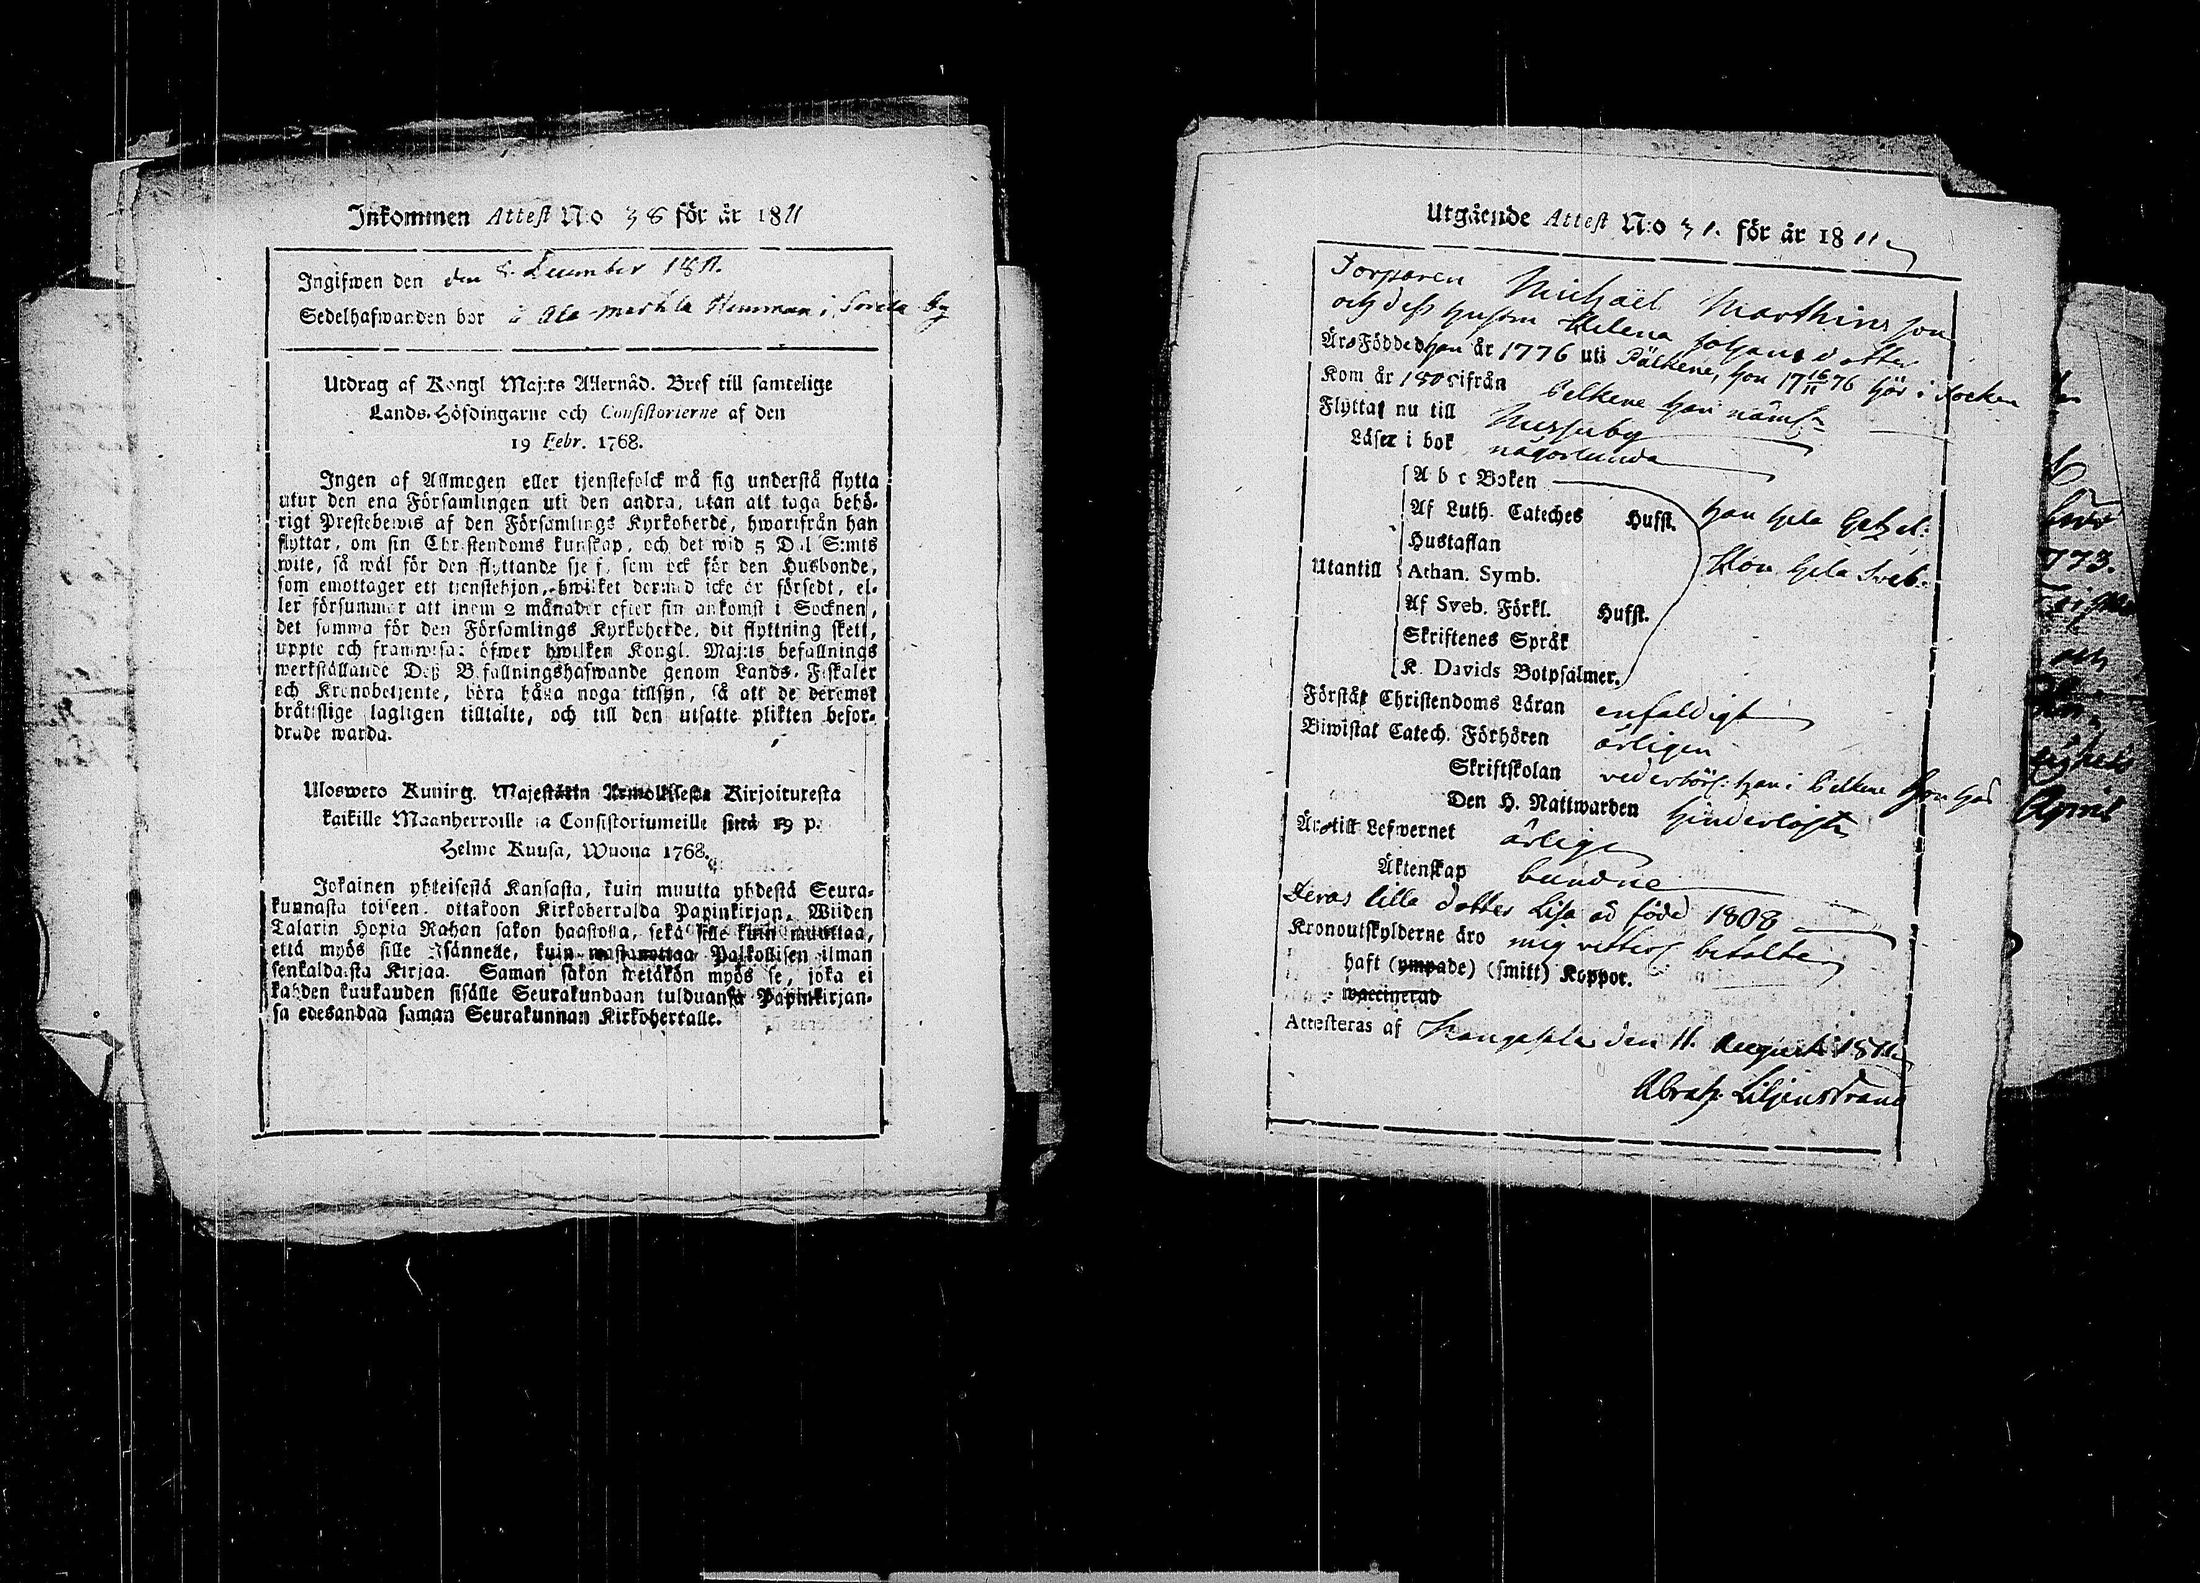 Inkommen Attest N:o 38 för år 1811
Ingifwen den den 8. December 1811.
Sedelhafwanden bor å Ala Merkla Hemman i Sorila by
Utdrag af Kongl Maj:ts Allernåd. Bref till samtelige
Lands-Höfdingarne och Consistorierne af den
19 Febr. 1768.
Ingen af Allmogen eller tjenstefolck må sig understå flytta
utur den ena Församlingen uti den andra, utan att taga behö-
rigt Prestebewis af den Församlings Kyrkoherde, hwarifrån han
flyttar, om sin Christendoms kunskap, och det wid 5 Dal S:mts
wite, så wäl för den flyttande sjelf, som ock för den Husbonde,
som emottager ett tjenstehjon, hwilket dermed icke är försedt, el-
ler försummar att inom 2 månader efter sin ankomst i Socknen,
det samma för den Församlings Kyrkoherde, dit flyttning skett,
uppte och framwisa: öfwer hwilken Kongl. Maj:ts befallnings
werkställande Deß Befallningshafwande genom Lands-Fiskaler
och Kronobetjente, böra hafwa noga tillsyn, så att de deremot
bråtslige lagligen tilltalte, och till den utsatte plikten befor-
drade warda.
Ulosweto Kuning. Majestätin Armollisesta Kirjoituresta
kaikille Maanherroille ja Consistoriumeille sinä 19 p.
Helme Kuusa, Wuona 1768.
Jokainen yhteisestä Kansasta, kuin muutta yhdestä Seura-
kunnasta toiseen, ottakoon Kirkoherralda Papinkirjan, Wiiden
Talarin Hopia Rahan sakon haastolla, sekä sille kuin muuttaa,
että myös sille Isännelle, kuin wastanottaa Palkollisen ilman
senkaldaista Kirjaa. Saman sakon wetäkön myös se, joka ei
kahden kuukauden sisälle Seurakundaan tulduansa Papinkirjan-
sa edesandaa saman Seurakunnan Kirkoherralle.
Utgående Attest N:o 31. för år 1811
Torparen Michaël Marthins son
och dess hustru Helena Johans dotter
Äro Födde han år 1776 uti Pälkene, hon 17 16/11 76 här i Socken
Kom år 1805 ifrån Pelkene han nämt
Flyttat nu till Messuby
Läser i bok någorlunda
Utantill
A b c Boken
Af Luth. Cateches Hufst.
Hustaflan
Athan. Symb.
Af Sveb. Förkl. Hufst.
Skriftenes Språk
K. Davids Botpsalmer.
han hela Getzel:
Hon hela Sveb.
Förstår Christendoms Läran enfaldigt
Biwistat Catech. Förhören årligen
Skriftskolan vederbörl: han i Pelkene hon här
Den H. Nattwarden hinderlöst
Äro till Lefwernet ärlige
Äktenskap bundne
Deras lilla dotter Lisa är född 1808
Kronoutskylderne äro mig vitterl betalte
haft (ympade) (smitt) Koppor.
waccinerad
Attesteras af Kangasala den 11. Augusti 1811
Abrah. Liljenstrand
773.
och
April